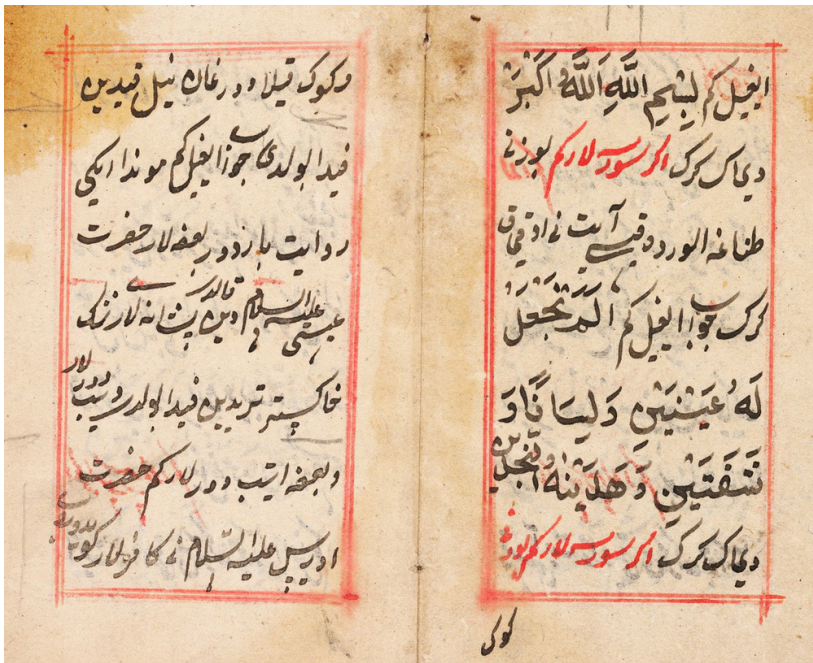 ایغیل کم بِسْمِ اللَّهِ اَللَّهُ اَکْبَرْ
دیماک کرک اکر سورسه لارکم بورنی
طناغه الورده قیسی آیت نی اوقیماق
کرک جواب ایغیل کم اَلَمْ نَجْعَلْ
لَهُ عَیْنَیْنِ وَلِسَانًا وَ
شَفَتَیْنِ وَهَدَیْنَهُ النَّجْدَیْنِ
دیماک کرک اکر سورسه لارکم بورنی
کوک
و کبوک قیلادورغان نیل قیدین
فیدا بولدی جواب ایغیل کم موندا ایکی
روایت باردور بعضه لار حضرت
عیسی علیه السلام دین قالدی
خاکستر فیدا بولدی دیب دورلار
و بعضه ایتب دورلارکم حضرت
ادریس علیه السلام نی کافرلار کویدوروب